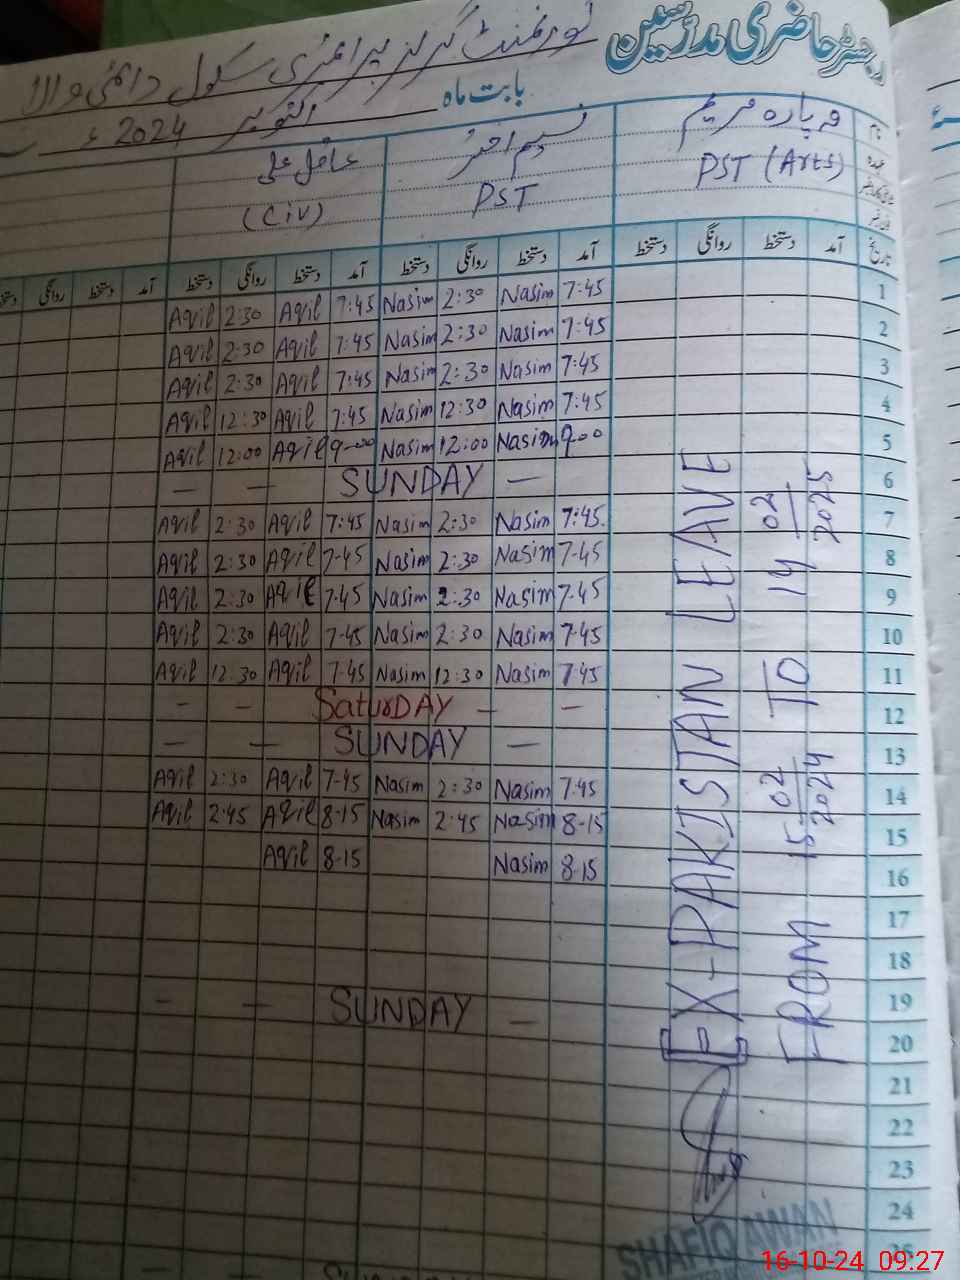 رجسٹر حاضری مدرسین گورنمنٹ گرلز پرائمری سکول
بابت ماہ اکتوبر 2024ء
نام مہ پارہ مریم نسیم اختر عاقل علی
عہدہ PST (Arts) PST (CIV)
تاریخ آمد دستخط روانگی دستخط آمد دستخط روانگی دستخط آمد دستخط روانگی دستخط آمد دستخط روانگی
1 7:45 Nasim 2:30 Nasim 7:45 Aqil 2:30 Aqil
2 7:45 Nasim 2:30 Nasim 7:45 Aqil 2:30 Aqil
3 7:45 Nasim 2:30 Nasim 7:45 Aqil 2:30 Aqil
4 7:45 Nasim 12:30 Nasim 7:45 Aqil 12:30 Aqil
5 9-00 Nasim 12:00 Nasim 9-00 Aqil 12:00 Aqil
6 — SUNDAY — —
7 7:45 Nasim 2:30 Nasim 7:45 Aqil 2:30 Aqil
8 7-45 Nasim 2:30 Nasim 7-45 Aqil 2:30 Aqil
9 7-45 Nasim 2:30 Nasim 7-45 Aqil 2:30 Aqil
10 7-45 Nasim 2:30 Nasim 7-45 Aqil 2:30 Aqil
11 7-45 Nasim 12:30 Nasim 7-45 Aqil 12:30 Aqil
12 — — SaturDAY — —
13 — SUNDAY — —
14 7-45 Nasim 2:30 Nasim 7-45 Aqil 2:30 Aqil
15 8-15 Nasim 2:45 Nasim 8-15 Aqil 2:45 Aqil
16 8-15 Nasim 8-15 Aqil
17
18
19
20 — SUNDAY — —
21
22
23
24
EX-PAKISTAN LEAVE
FROM 15 02 2024 TO 14 02 2025
SHAFIQ AWAN
16-10-24 09:27